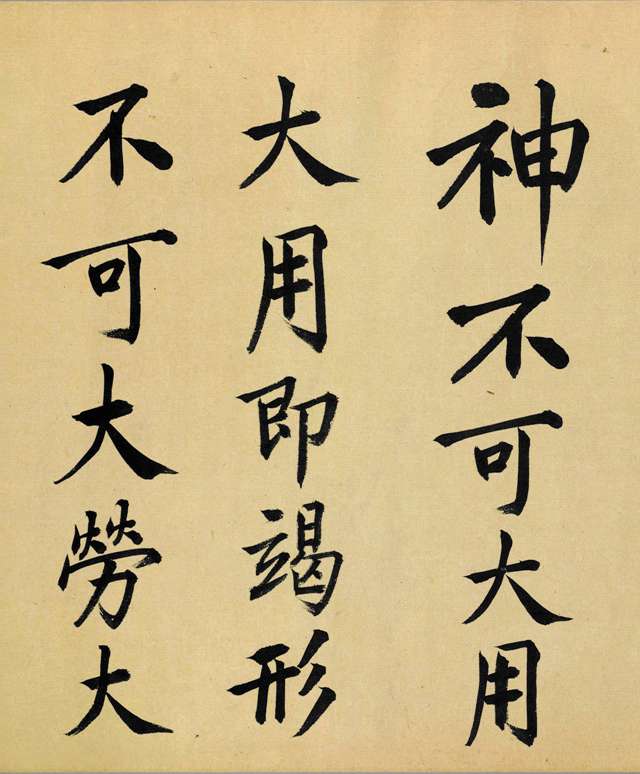 神不可大用
大用即竭形
不可大勞大